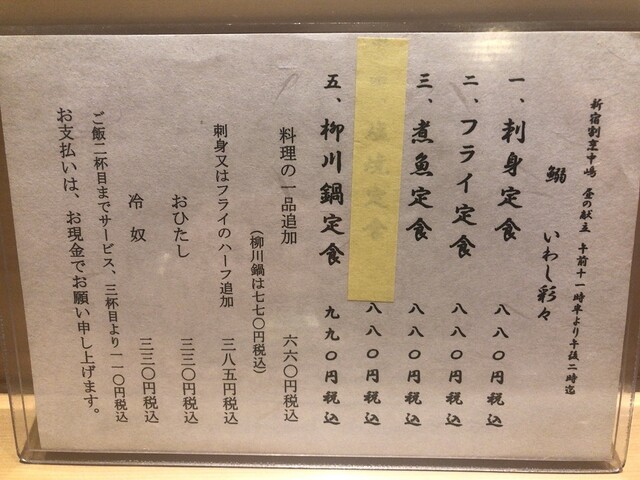 新宿割烹中嶋　昼の献立　午前十一時半より午後二時迄
鰯　いわし彩々
一、刺身定食　八八〇円税込
二、フライ定食　八八〇円税込
三、煮魚定食　八八〇円税込
定食　八八〇円税込
五、柳川鍋定食　九九〇円税込
料理の一品追加　六六〇円税込
（柳川鍋は七七〇円税込）
刺身又はフライのハーフ追加　三八五円税込
おひたし　三三〇円税込
冷奴　三三〇円税込
ご飯二杯目までサービス、三杯目より一一〇円税込
お支払いは、お現金でお願い申し上げます。